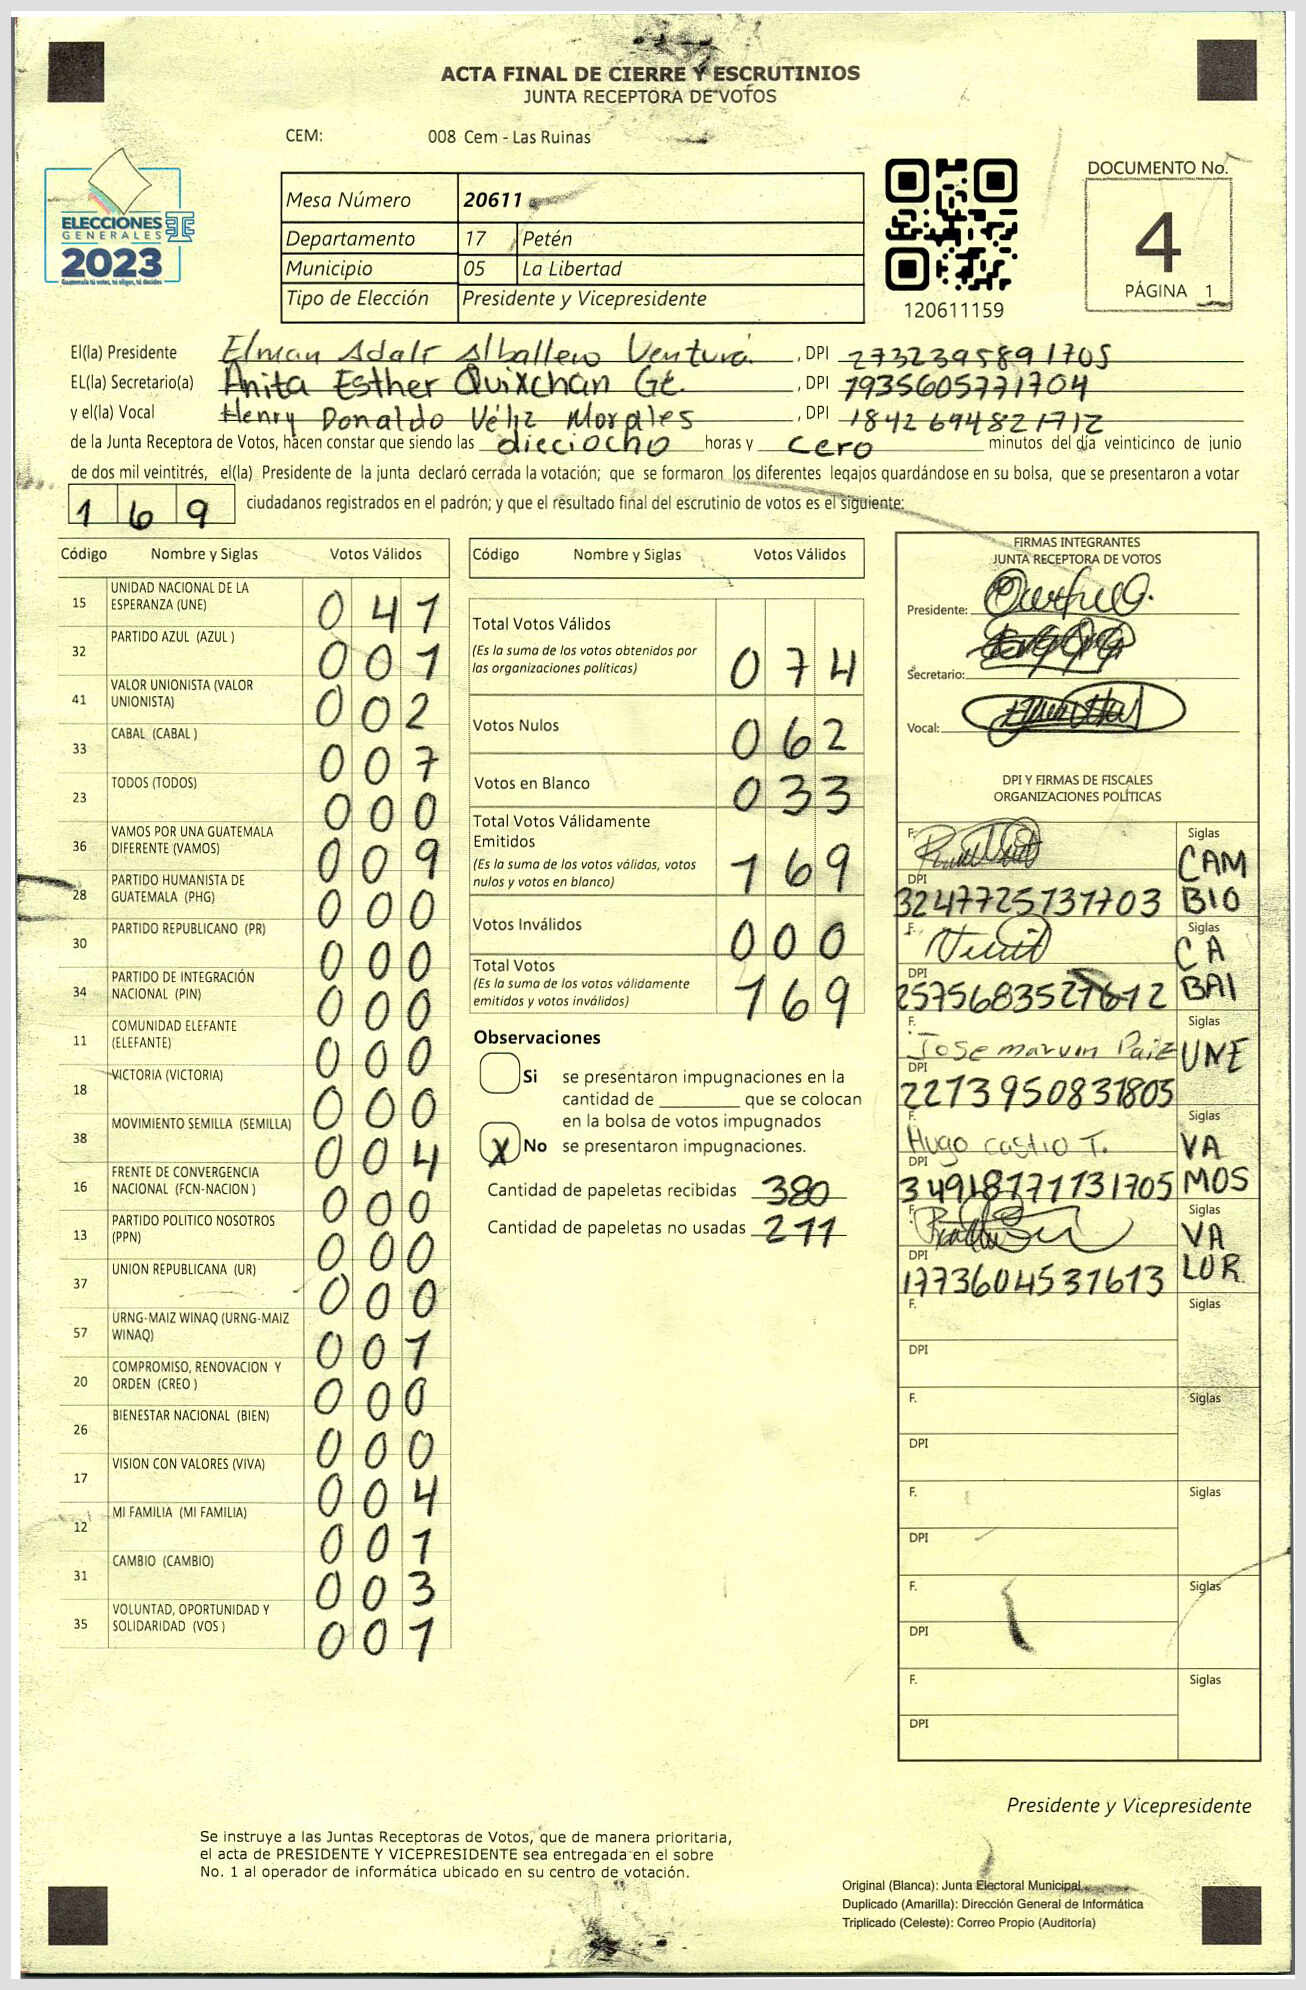 ACTA FINAL DE CIERRE Y ESCRUTINIOS
JUNTA RECEPTORA DE VOTOS
CEM: 008 Cem - Las Ruinas
ELECCIONES
GENERALES
2023
Guatemala tú votas, tú eliges, tú decides
Mesa Número 20611
Departamento 17 Petén
Municipio 05 La Libertad
Tipo de Elección Presidente y Vicepresidente
120611159
DOCUMENTO No.
4
PÁGINA 1
El(la) Presidente Elman Adalí Alballero Ventura , DPI 2732395891705
EL(la) Secretario(a) Anita Esther Quixchan Gé. , DPI 1935605771704
y el(la) Vocal Henry Donaldo Véliz Morales , DPI 1842694821712
de la Junta Receptora de Votos, hacen constar que siendo las dieciocho horas y cero minutos del día veinticinco de junio
de dos mil veintitrés, el(la) Presidente de la junta declaró cerrada la votación; que se formaron los diferentes legajos guardándose en su bolsa, que se presentaron a votar
169 ciudadanos registrados en el padrón; y que el resultado final del escrutinio de votos es el siguiente:
Código Nombre y Siglas Votos Válidos
15 UNIDAD NACIONAL DE LA ESPERANZA (UNE) 041
32 PARTIDO AZUL (AZUL ) 001
41 VALOR UNIONISTA (VALOR UNIONISTA) 002
33 CABAL (CABAL ) 007
23 TODOS (TODOS) 000
36 VAMOS POR UNA GUATEMALA DIFERENTE (VAMOS) 009
28 PARTIDO HUMANISTA DE GUATEMALA (PHG) 000
30 PARTIDO REPUBLICANO (PR) 000
34 PARTIDO DE INTEGRACIÓN NACIONAL (PIN) 000
11 COMUNIDAD ELEFANTE (ELEFANTE) 000
18 VICTORIA (VICTORIA) 000
38 MOVIMIENTO SEMILLA (SEMILLA) 004
16 FRENTE DE CONVERGENCIA NACIONAL (FCN-NACION ) 000
13 PARTIDO POLITICO NOSOTROS (PPN) 000
37 UNION REPUBLICANA (UR) 000
57 URNG-MAIZ WINAQ (URNG-MAIZ WINAQ) 001
20 COMPROMISO, RENOVACION Y ORDEN (CREO ) 000
26 BIENESTAR NACIONAL (BIEN) 000
17 VISION CON VALORES (VIVA) 004
12 MI FAMILIA (MI FAMILIA) 001
31 CAMBIO (CAMBIO) 003
35 VOLUNTAD, OPORTUNIDAD Y SOLIDARIDAD (VOS ) 001
Código Nombre y Siglas Votos Válidos
Total Votos Válidos
(Es la suma de los votos obtenidos por
las organizaciones políticas) 074
Votos Nulos 062
Votos en Blanco 033
Total Votos Válidamente
Emitidos
(Es la suma de los votos válidos, votos
nulos y votos en blanco) 169
Votos Inválidos 000
Total Votos
(Es la suma de los votos válidamente
emitidos y votos inválidos) 169
Observaciones
Si se presentaron impugnaciones en la
cantidad de ________ que se colocan
en la bolsa de votos impugnados
X No se presentaron impugnaciones.
Cantidad de papeletas recibidas 380
Cantidad de papeletas no usadas 211
FIRMAS INTEGRANTES
JUNTA RECEPTORA DE VOTOS
Presidente:
Secretario:
Vocal:
DPI Y FIRMAS DE FISCALES
ORGANIZACIONES POLÍTICAS
F. Siglas CAM
DPI 3247725131703 BIO
F. Siglas CA
DPI 2575683521612 BAl
F. Jose marvin Paiz Siglas UNE
DPI 2213950831805
F. Hugo Castro T. Siglas VA
DPI 3491877131705 MOS
F. Siglas VA
DPI 1773604531613 LOR
F. Siglas
DPI
F. Siglas
DPI
F. Siglas
DPI
F. Siglas
DPI
F. Siglas
DPI
Presidente y Vicepresidente
Se instruye a las Juntas Receptoras de Votos, que de manera prioritaria,
el acta de PRESIDENTE Y VICEPRESIDENTE sea entregada en el sobre
No. 1 al operador de informática ubicado en su centro de votación.
Original (Blanca): Junta Electoral Municipal
Duplicado (Amarilla): Dirección General de Informática
Triplicado (Celeste): Correo Propio (Auditoría)